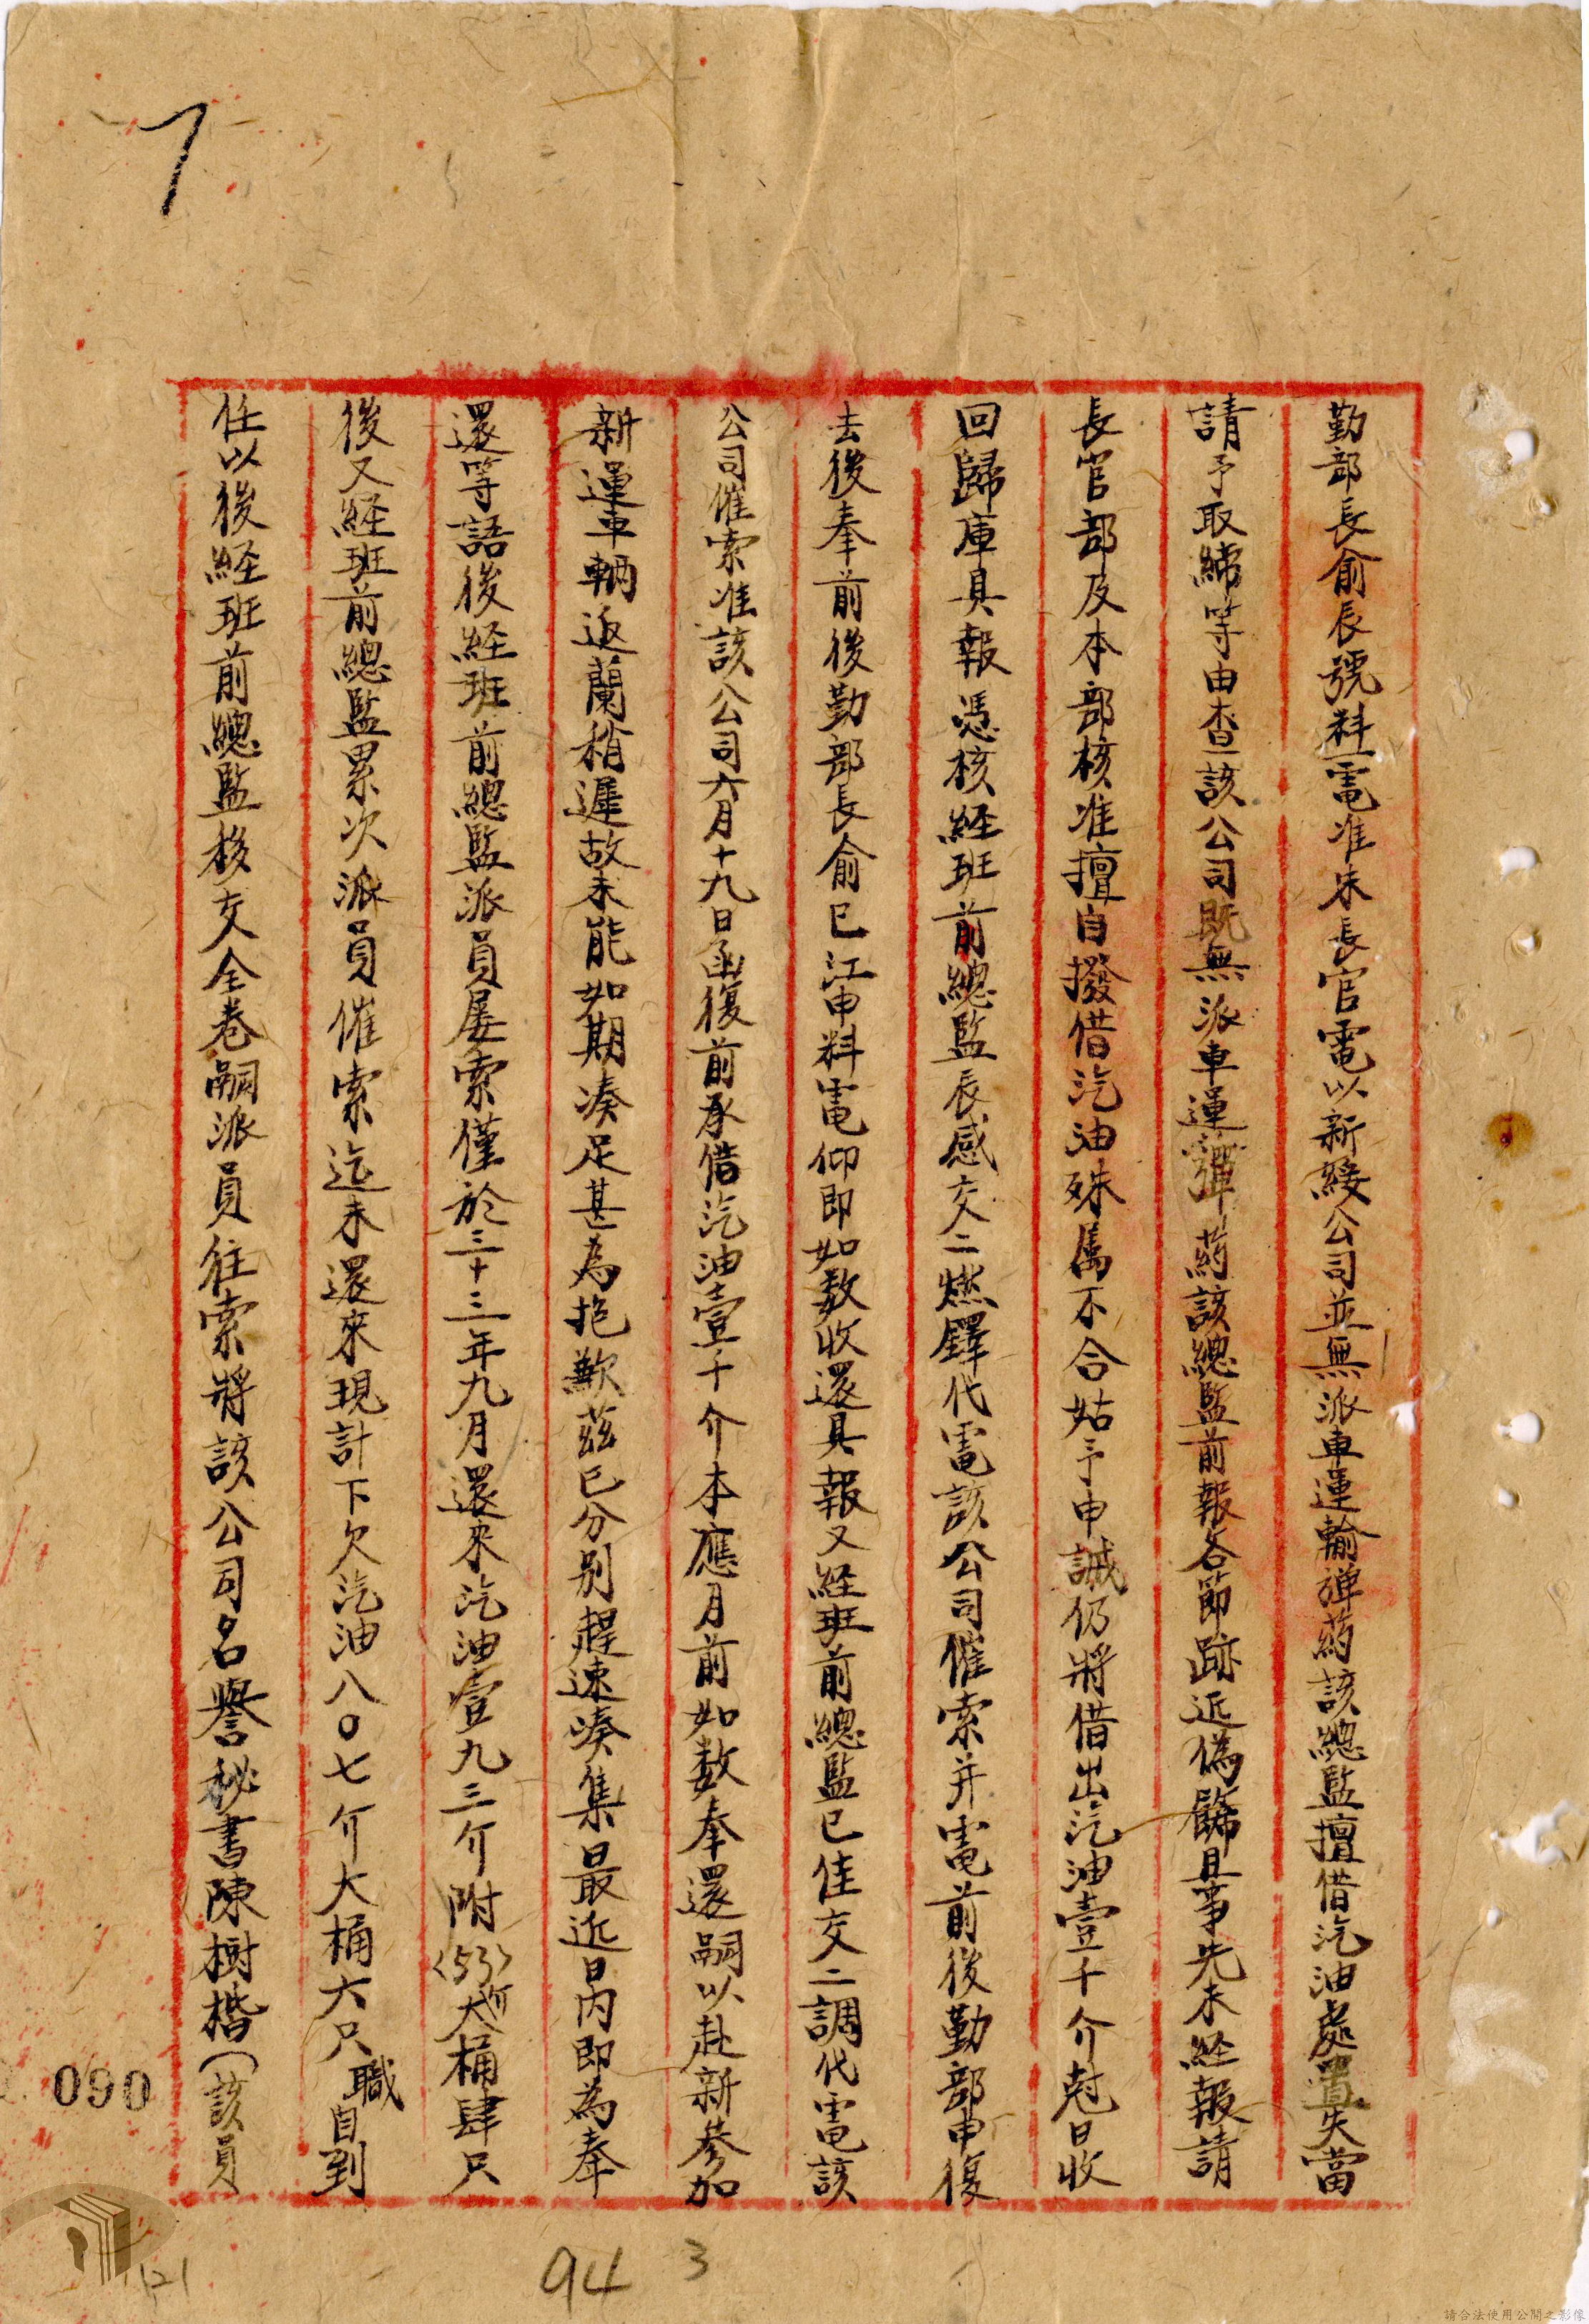 勤部長俞辰號料電准朱長官電以新綏公司並無派車運輸彈葯該總監擅借汽油處置失當
請予取締等由查該公司既無派車運彈葯該總監前報各節跡近偽飾且事先未経報請
長官部及本部核准擅自撥借汽油殊属不合姑予申誡仍將借出汽油壹千介尅日收
回歸庫具報憑核経班前總監辰感交二燃鐸代電該公司催索并電前後勤部申復
去後奉前後勤部長俞巳江申料電仰即如数收還具報又経班前總監巳佳交二調代電該
公司催索准該公司六月十九日函復前承借汽油壹千介本應月前如数奉還嗣以赴新參加
新運車輛返蘭稍遲故未能如期凑足甚為抱歉茲已分别趕速凑集最近日内即為奉
還等語後経班前總監派員屡索僅於三十三年九月還來汽油壹九三介附〈53〉介大桶肆只
後又経班前總監累次派員催索迄未還來現計下欠汽油八〇七介大桶六只職自到
任以後経班前總監移交全卷嗣派員往索將該公司名譽秘書陳樹楷（該員
7
090
121
94
3
請合法使用公開之影像